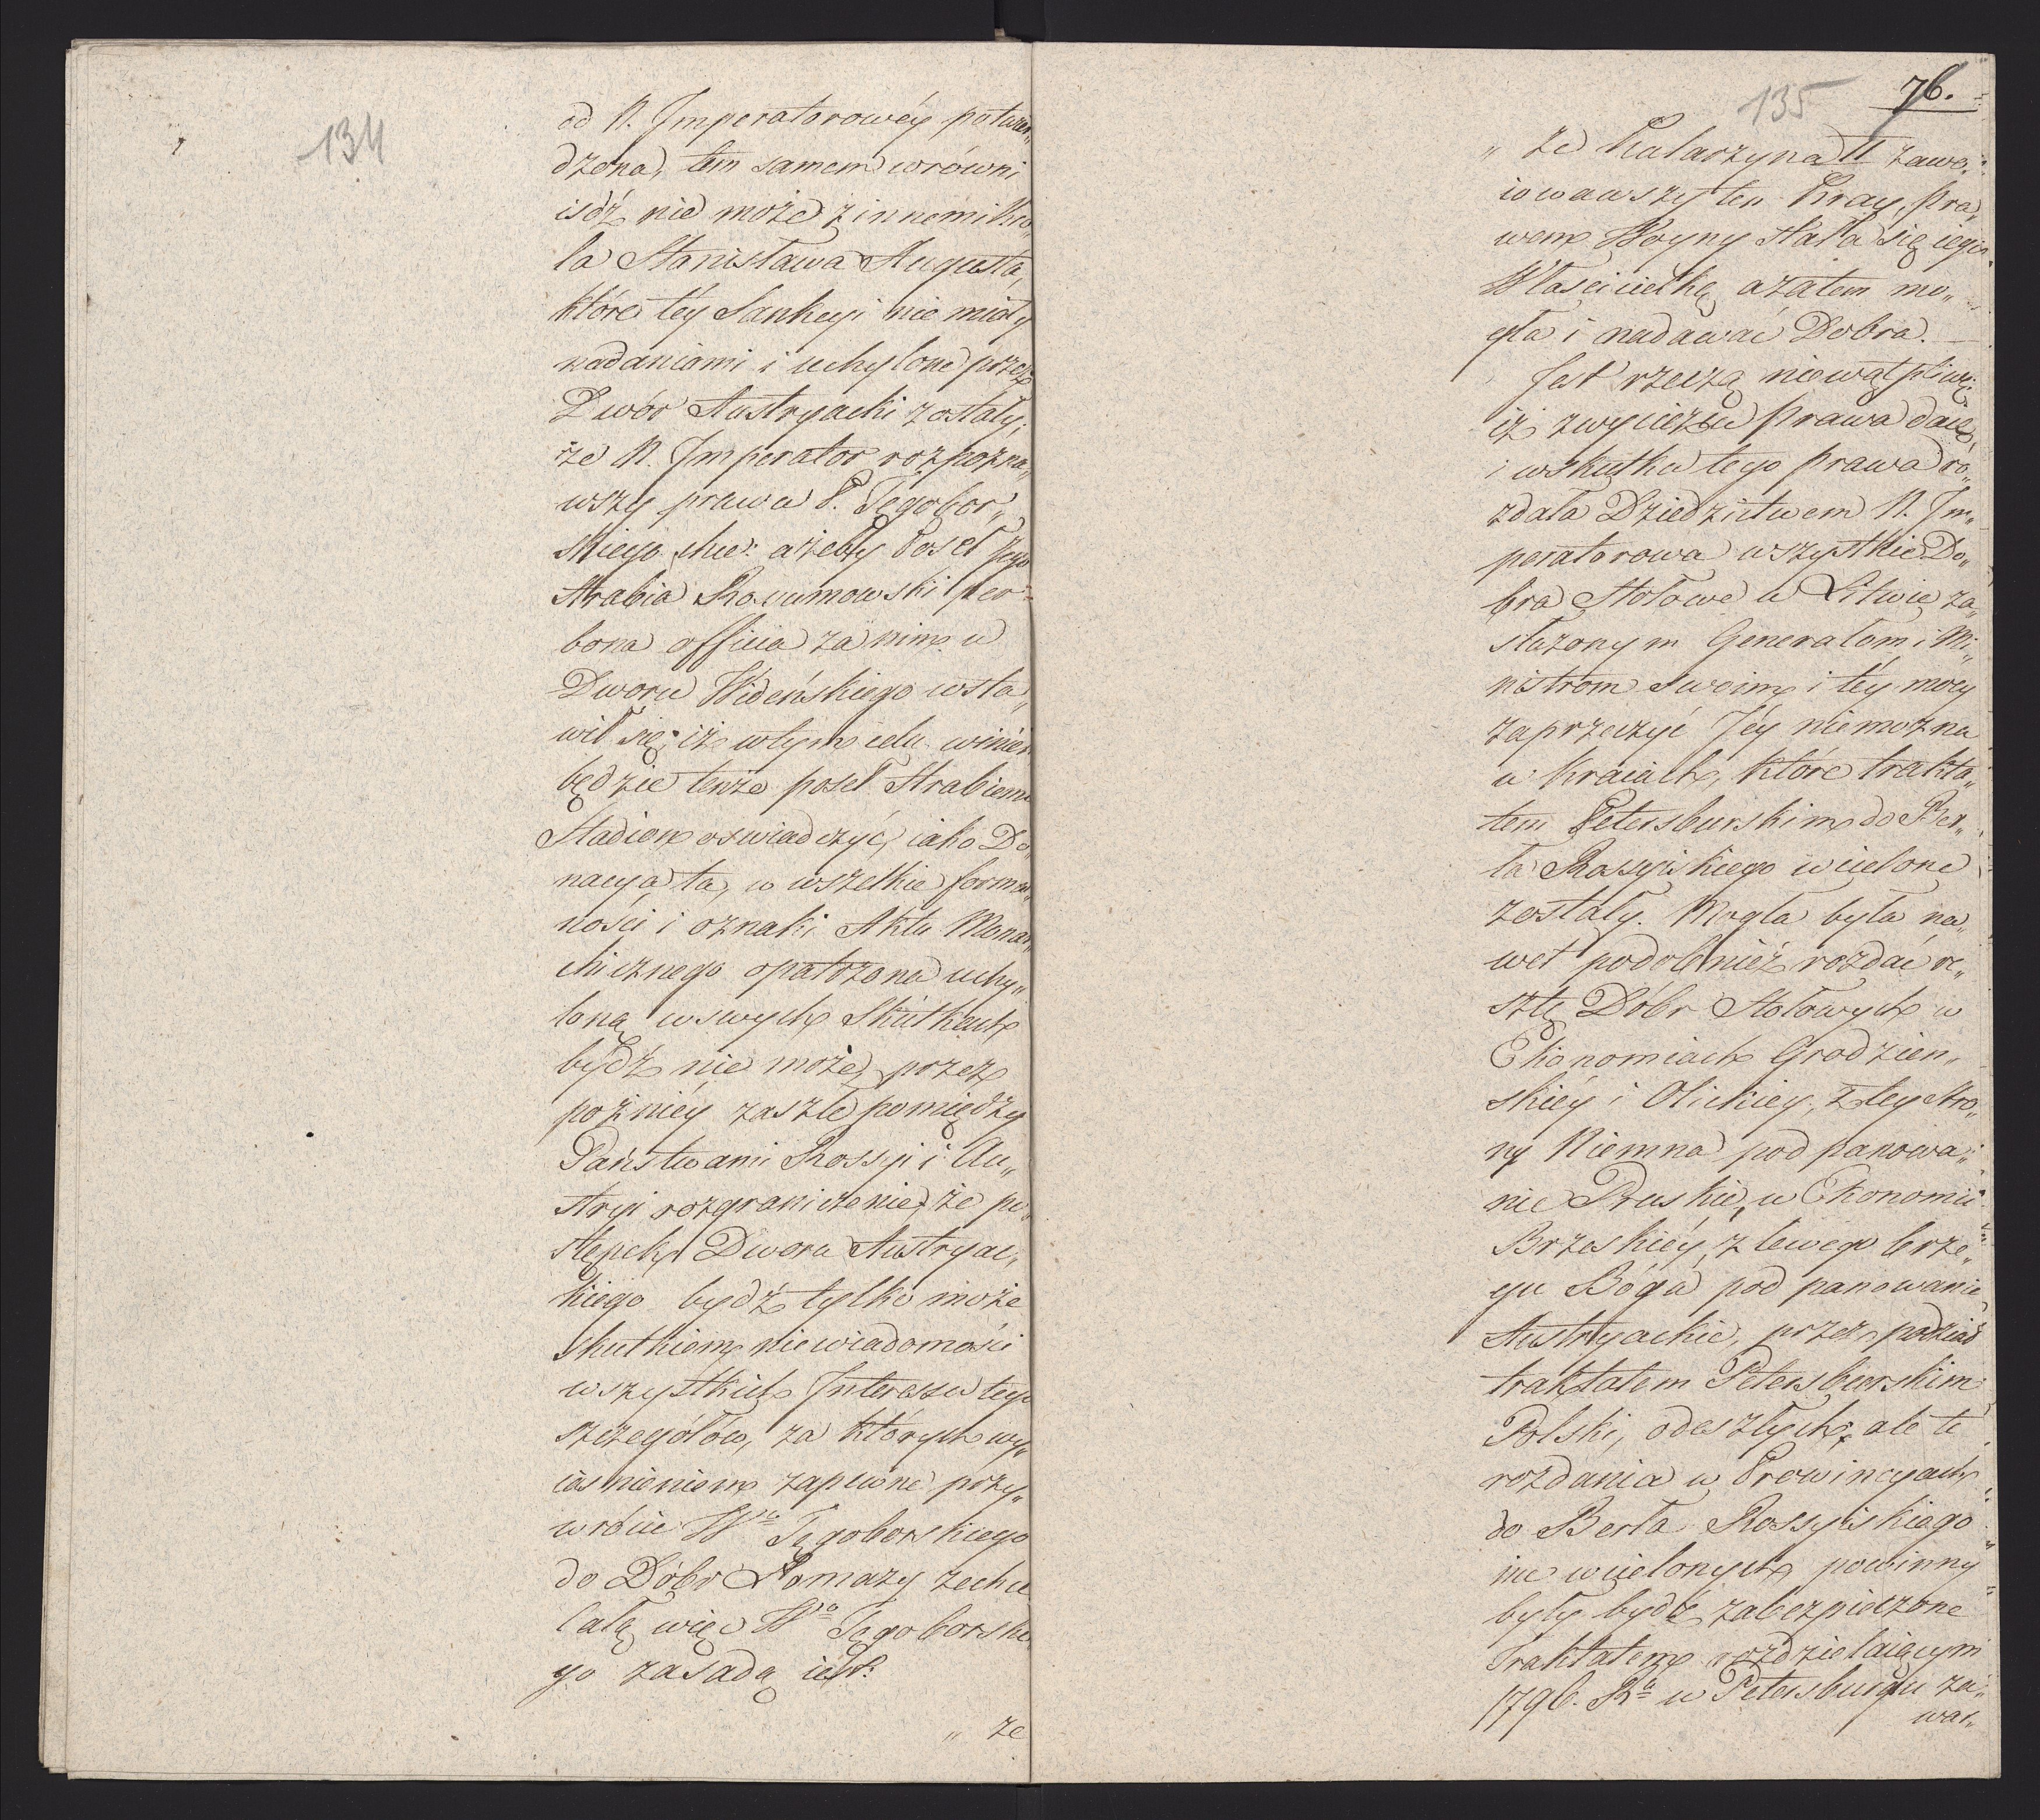 134
od N. Imperatorowéy potwier„
dzona, tem samem wrówni
iśdź nie może z innemi Kró„
la Stanisława Augusta,
które téy Sankcyi nie miały
nadaniami i uchylone przez
Dwór Austryacki zostały;
że N. Imperator rozpozna„
wszy prawa P. Tęgobor„
skiego chce: ażeby Poseł Jego
Hrabia Rozumowski per
bona officia za nim u
Dworu Wideńskiego wsta„
wił się; iż w tym celu winien
będzie tenże poseł Hrabiemu
Stadion oswiadczyć, iako Do„
nacya ta, w wszelkie formal„
ności i oznaki Aktu Monar„
chicznego opatrzona uchy„
loną w swych Skutkach
bydź nie może, przez
poźniéy zaszłe pomiędzy
Państwami Rossyi i Au„
stryi rozgraniczenie, że po„
stępek Dwora Austryac„
kiego bydź tylko może
skutkiem niewiadomości
wszystkich Interessu tego
szczegółów, za których wy„
iaśnieniem zapewne przy„
wrócić W<sup>o</sup> Tęgoborskiego
do Dóbr Łomazy zechce
Całą więc W<sup>o</sup> Tęgoborskie
go zasadą iest:
„ że
135
76.
„ że Katarzyna II zawo„
iowawszy ten Kray, pra„
wem Woyny stała się iego
Właścicielką, a zatem mo„
gła i nadawać Dobra. —
Jest rzeczą niewątpliwą
iż zwycięztwo prawa daie,
i wskutku tego prawa ro„
zdała Dziedzictwem N. Im„
peratorowa wszystkie Do„
bra Stołowe w Litwie za„
służonym Generałom i Mi„
nistrom Swoim i téy mocy
zaprzeczyć Jéy niemożna
w Kraiach, które trakta„
tem Petersburskim do Ber„
ła Rossyiskiego wcielone
zostały. Mogła była na„
wet podobnież rozdać re„
sztę Dóbr Stołowych w
Ekonomiach Grodzien„
skiéy i Olickiey, z téy stro„
ny Niemna pod panowa„
nie Pruskie, w Ekonomii
Brzeskiéy, z lewego brze„
gu Bógu pod panowanie
Austryackie, przez podział
traktatem Petersburskim
Polski, odeszłych, ale te
rozdania w Prowincyach
do Berła Rossyiskiego
nie wcielonych powinny
były bydź zabezpieczone
Traktatem rozdzielaiącym
1796. R<sup>a</sup> w Petersburgu za„
war„